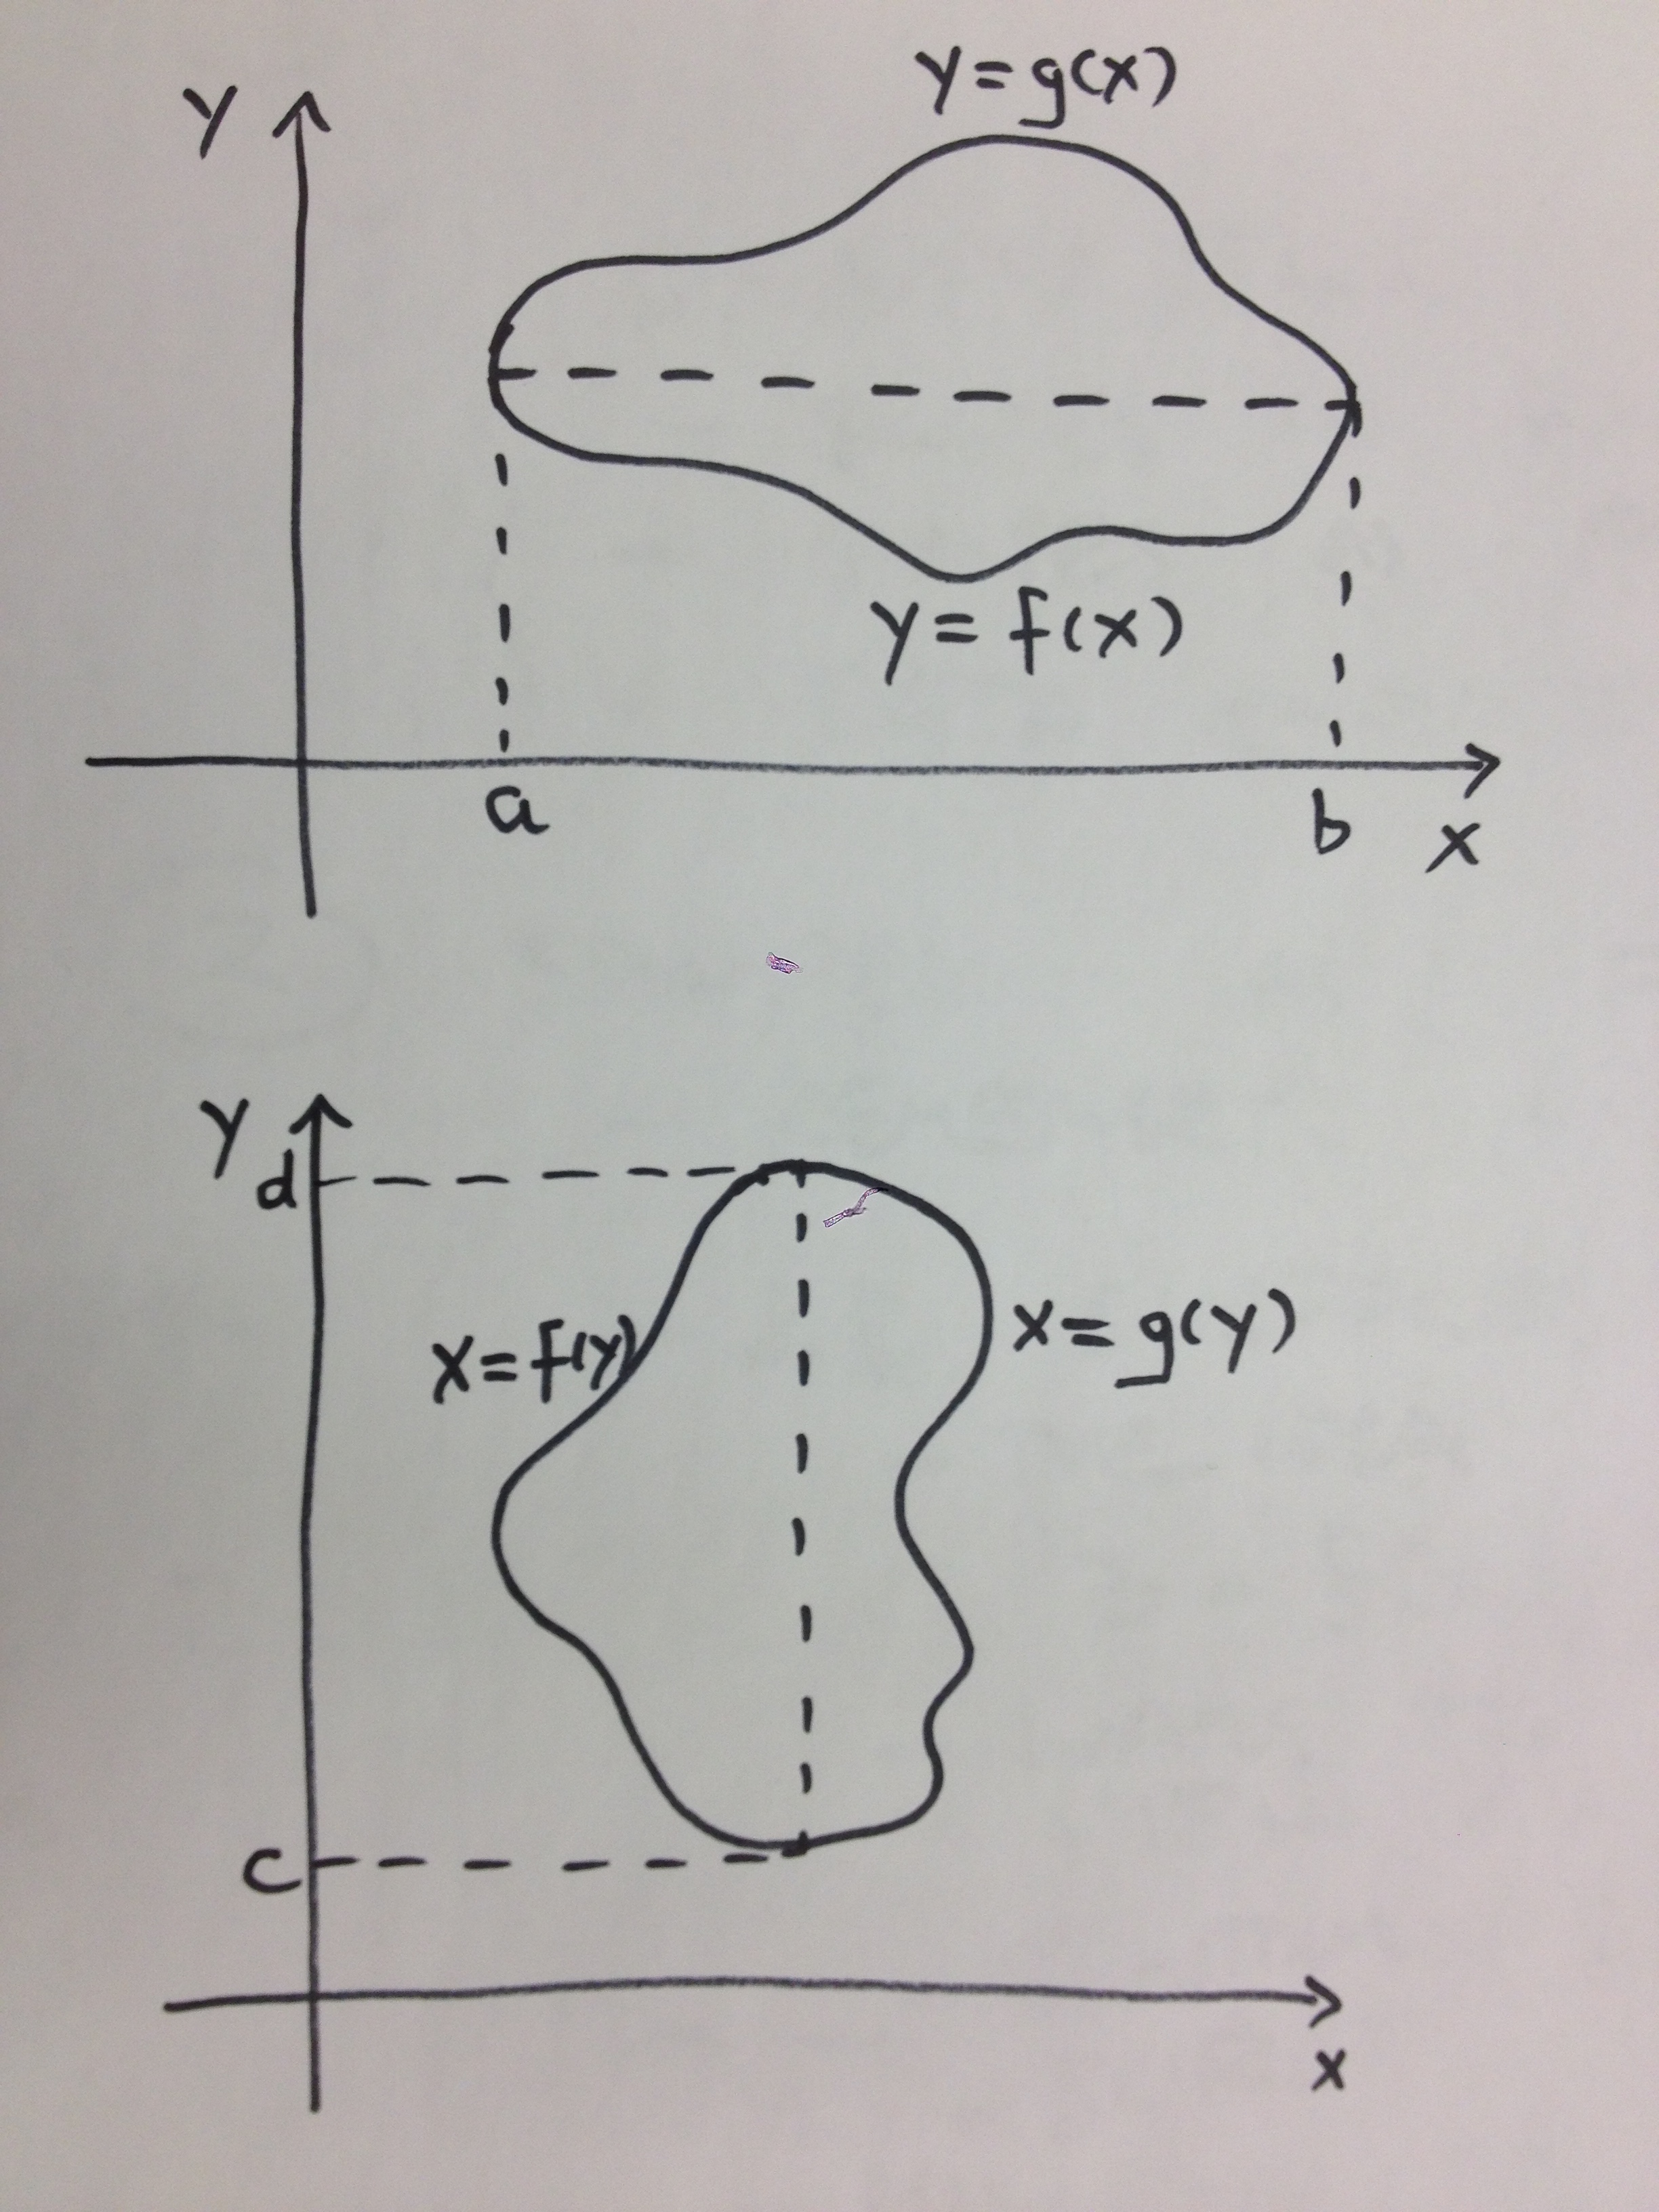 y = g(x)
y
y = f(x)
a
b
x
y
d
x = f(y)
x = g(y)
c
x